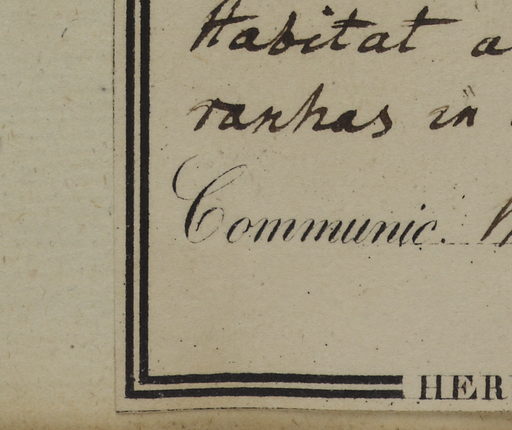 Habitat a
ranhas in
Communic.
HER